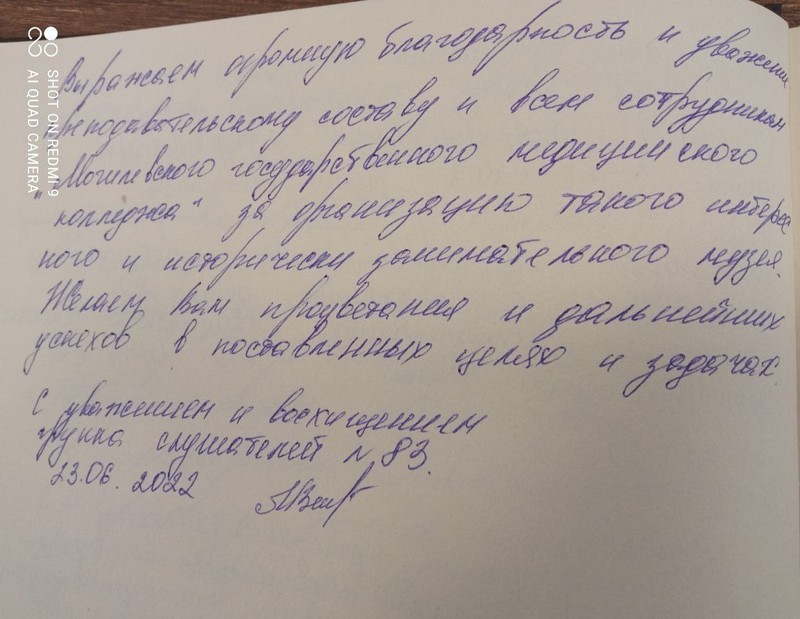 Выражаем огромную благодарность и уважение
преподавательскому составу и всем сотрудникам
"Могилевского государственного медицинского
колледжа" за организацию такого интерес
ного и исторически занимательного музея.
Желаем Вам процветания и дальнейших
успехов в поставленных целях и задачах.
С уважением и восхищением
группа слушателей № 83.
23.06.2022
SHOT ON REDMI 9
AI QUAD CAMERA